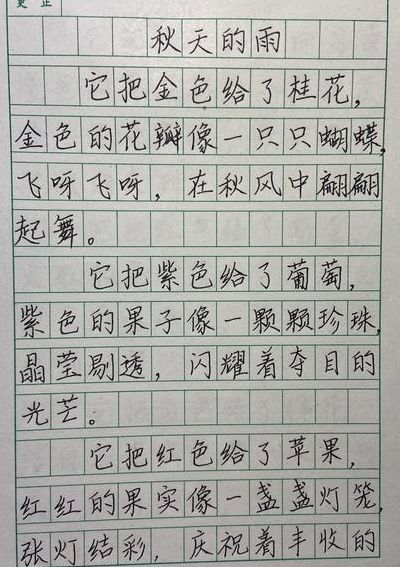 更正
秋天的雨
它把金色给了桂花，
金色的花瓣像一只只蝴蝶，
飞呀飞呀，在秋风中翩翩
起舞。
它把紫色给了葡萄，
紫色的果子像一颗颗珍珠，
晶莹剔透，闪耀着夺目的
光芒。
它把红色给了苹果，
红红的果实像一盏盏灯笼，
张灯结彩，庆祝着丰收的